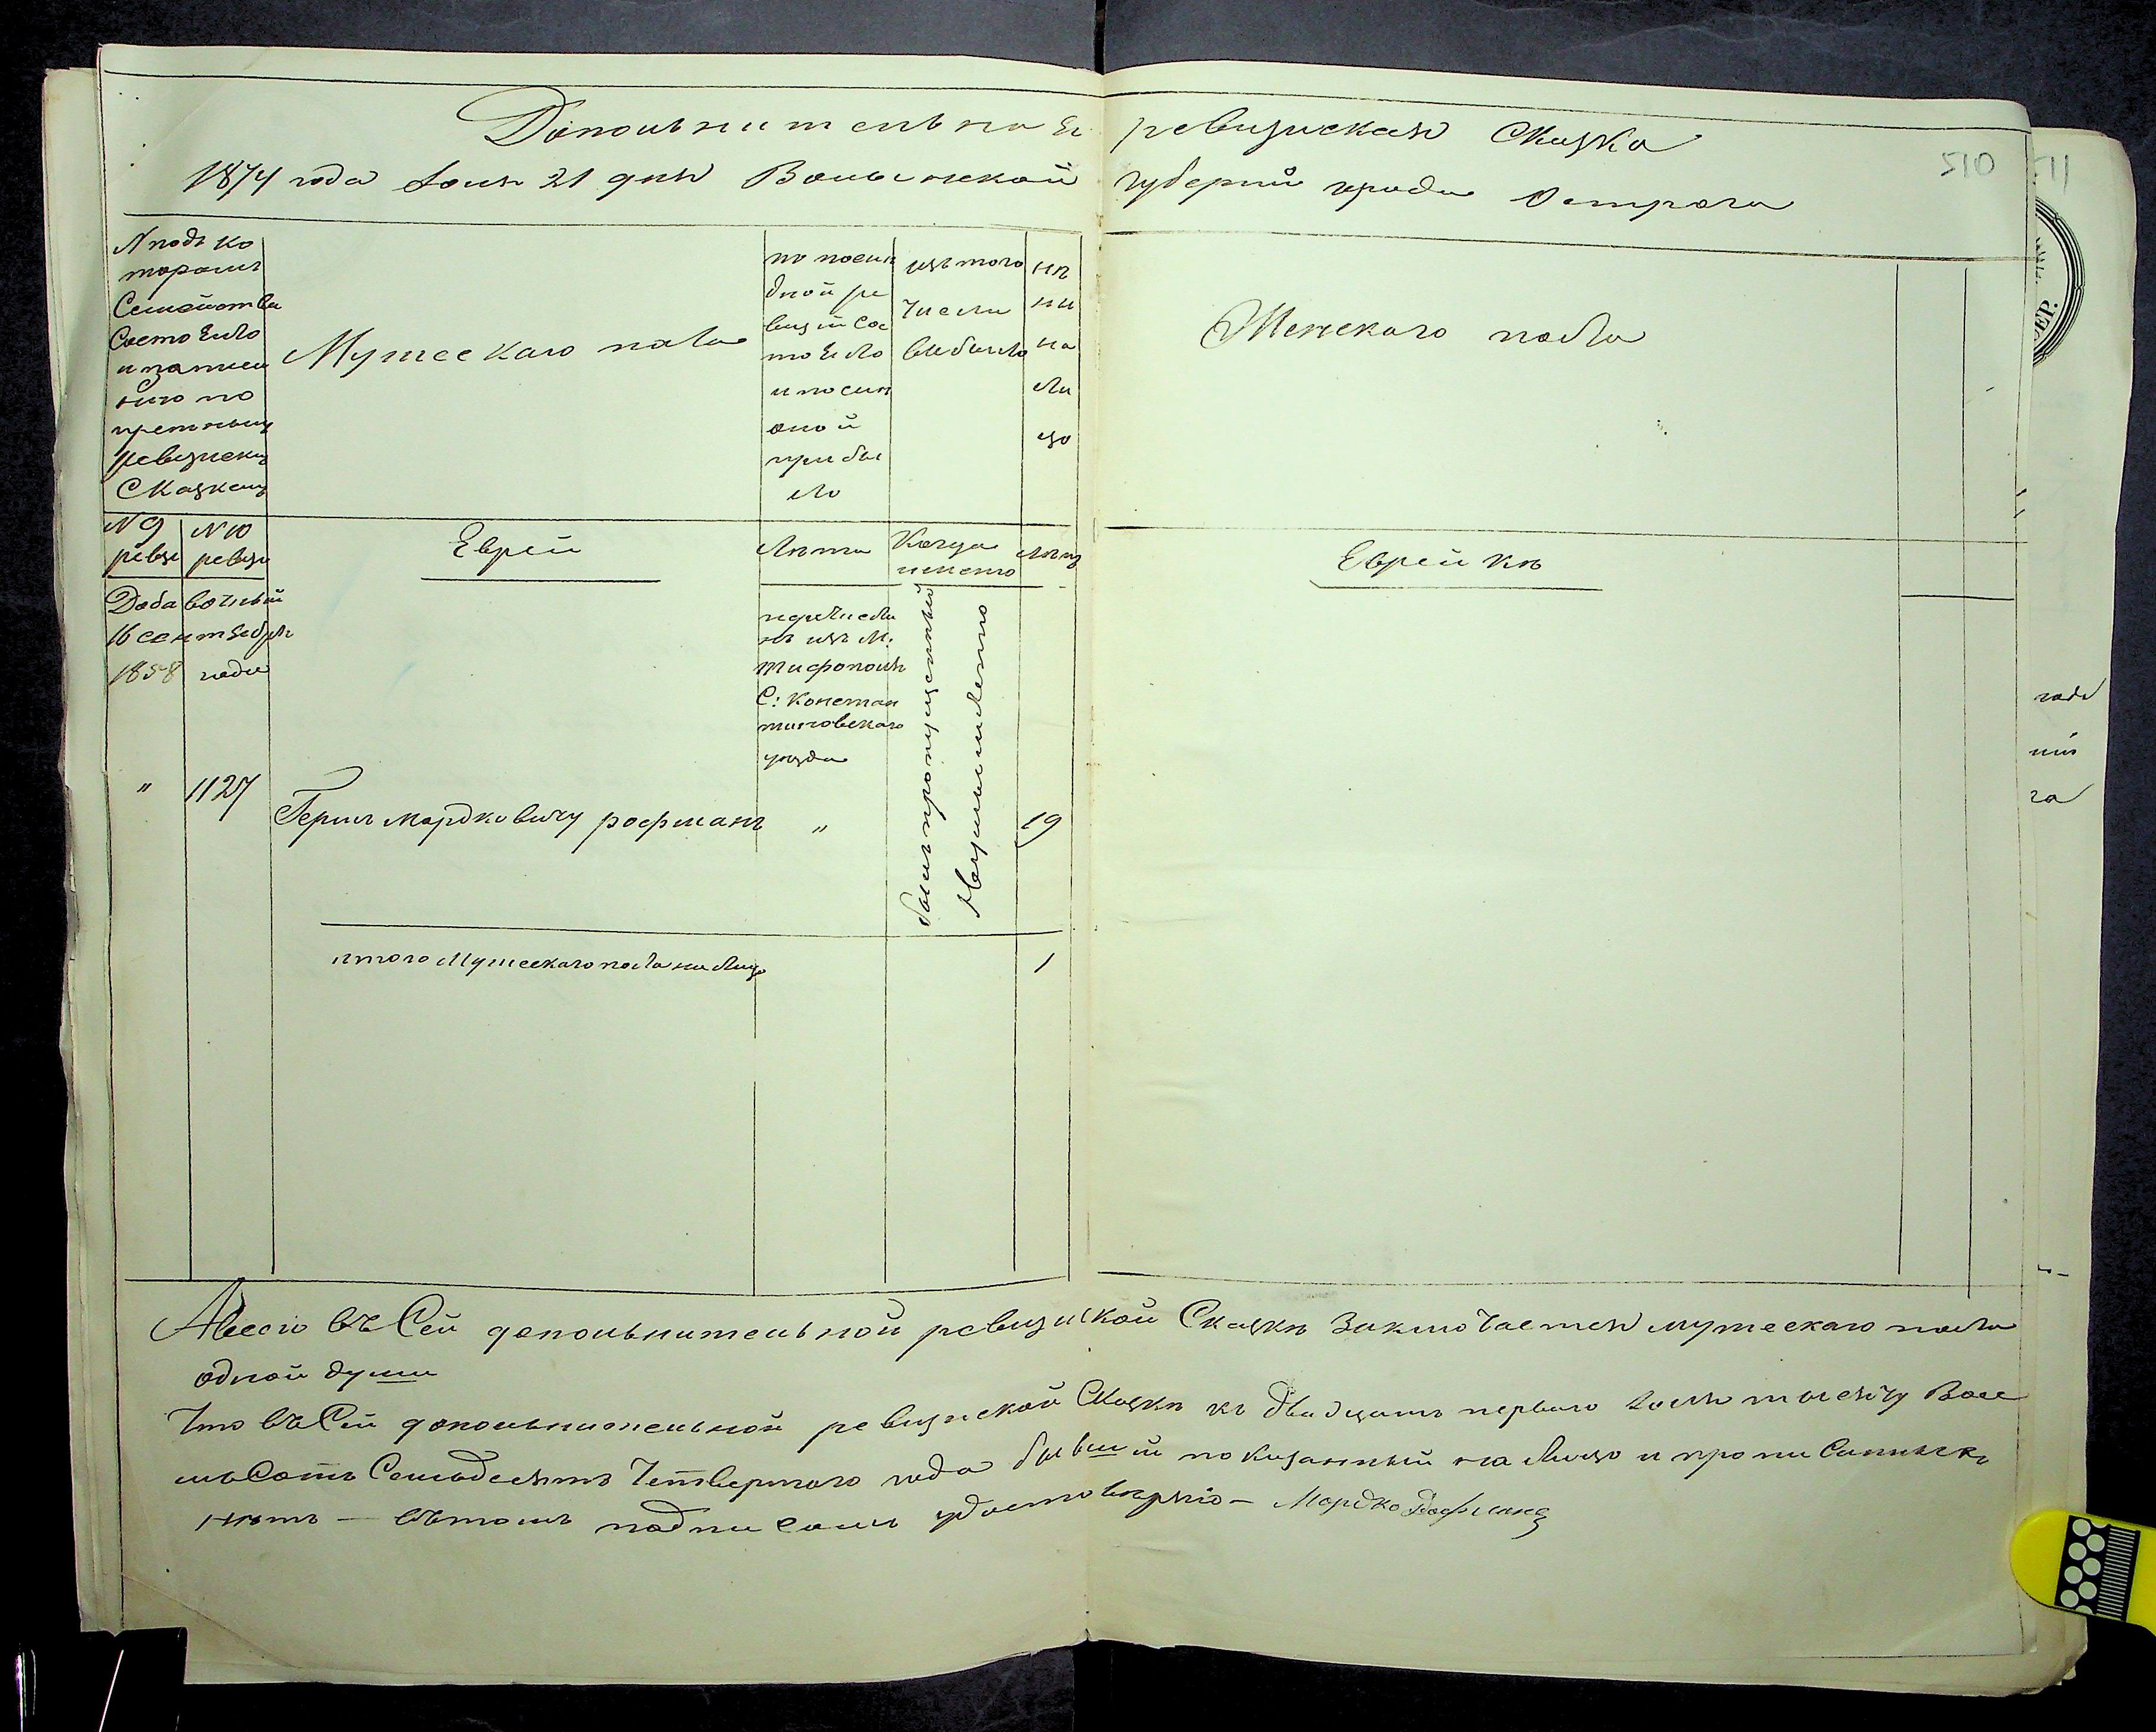 Допольнительная ревизиская Сказка
510
1874 года Іюля 21 дня Волынской губерніи города Острога
N подъ ко
торомъ
Семейства
Состояло
и записа
но по
преждныхъ
ревизскихъ
Сказкамъ
Мужескаго пола
по послѣ
дной ре
визіи сос
тояло
и после
оной
прибы
ло
изъ того
числа
выбыло
нѣ
нѣ
на
ли
цо
Женскаго пола
N 9 ревзи
N 10 ревзи
Еврей
Лѣта
Когда имено
Лѣта
Еврейки
Добавочный
16 сентября
1858 года
перечисле
нъ изъ м.
С: Констан
тиновскаго
уѣзда
былъ пропущенный
неумышленно
" 1127 Гершъ Мордковичъ рофманъ " 19
итого Мужескаго пола на лицо 1
Авсего въ Сей допольнительной ревизкой Сказкѣ Заключается мужескаго пола
одной души
Что въ Сей допольнительной ревизской Сказкѣ къ двадцать перваго Іюля тысячу Восе
мьСотъ Семьдесятъ Четвертаго года бывший показанный на лицо и прописаныхъ
нѣтъ — въ томъ подписомъ удостовѣряю — Мордко Рофманъ
СЕР.
года
нія
га